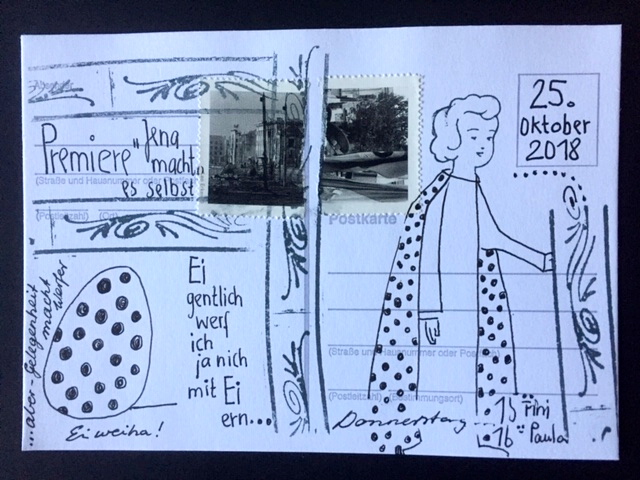 Premiere "Jena
macht
es selbst"
(Straße und Hausnummer oder Postfach)
(Postleitzahl)
Ei
gentlich
werf
ich
ja nich
mit Ei
ern...
...aber-Gelegenheit
macht
Werfer
Eiweiha!
25.
Oktober
2018
Postkarte
(Straße und Hausnummer oder Postfach)
(Postleitzahl) (Bestimmungsort)
Donnerstag
15 Fini
16 Paula